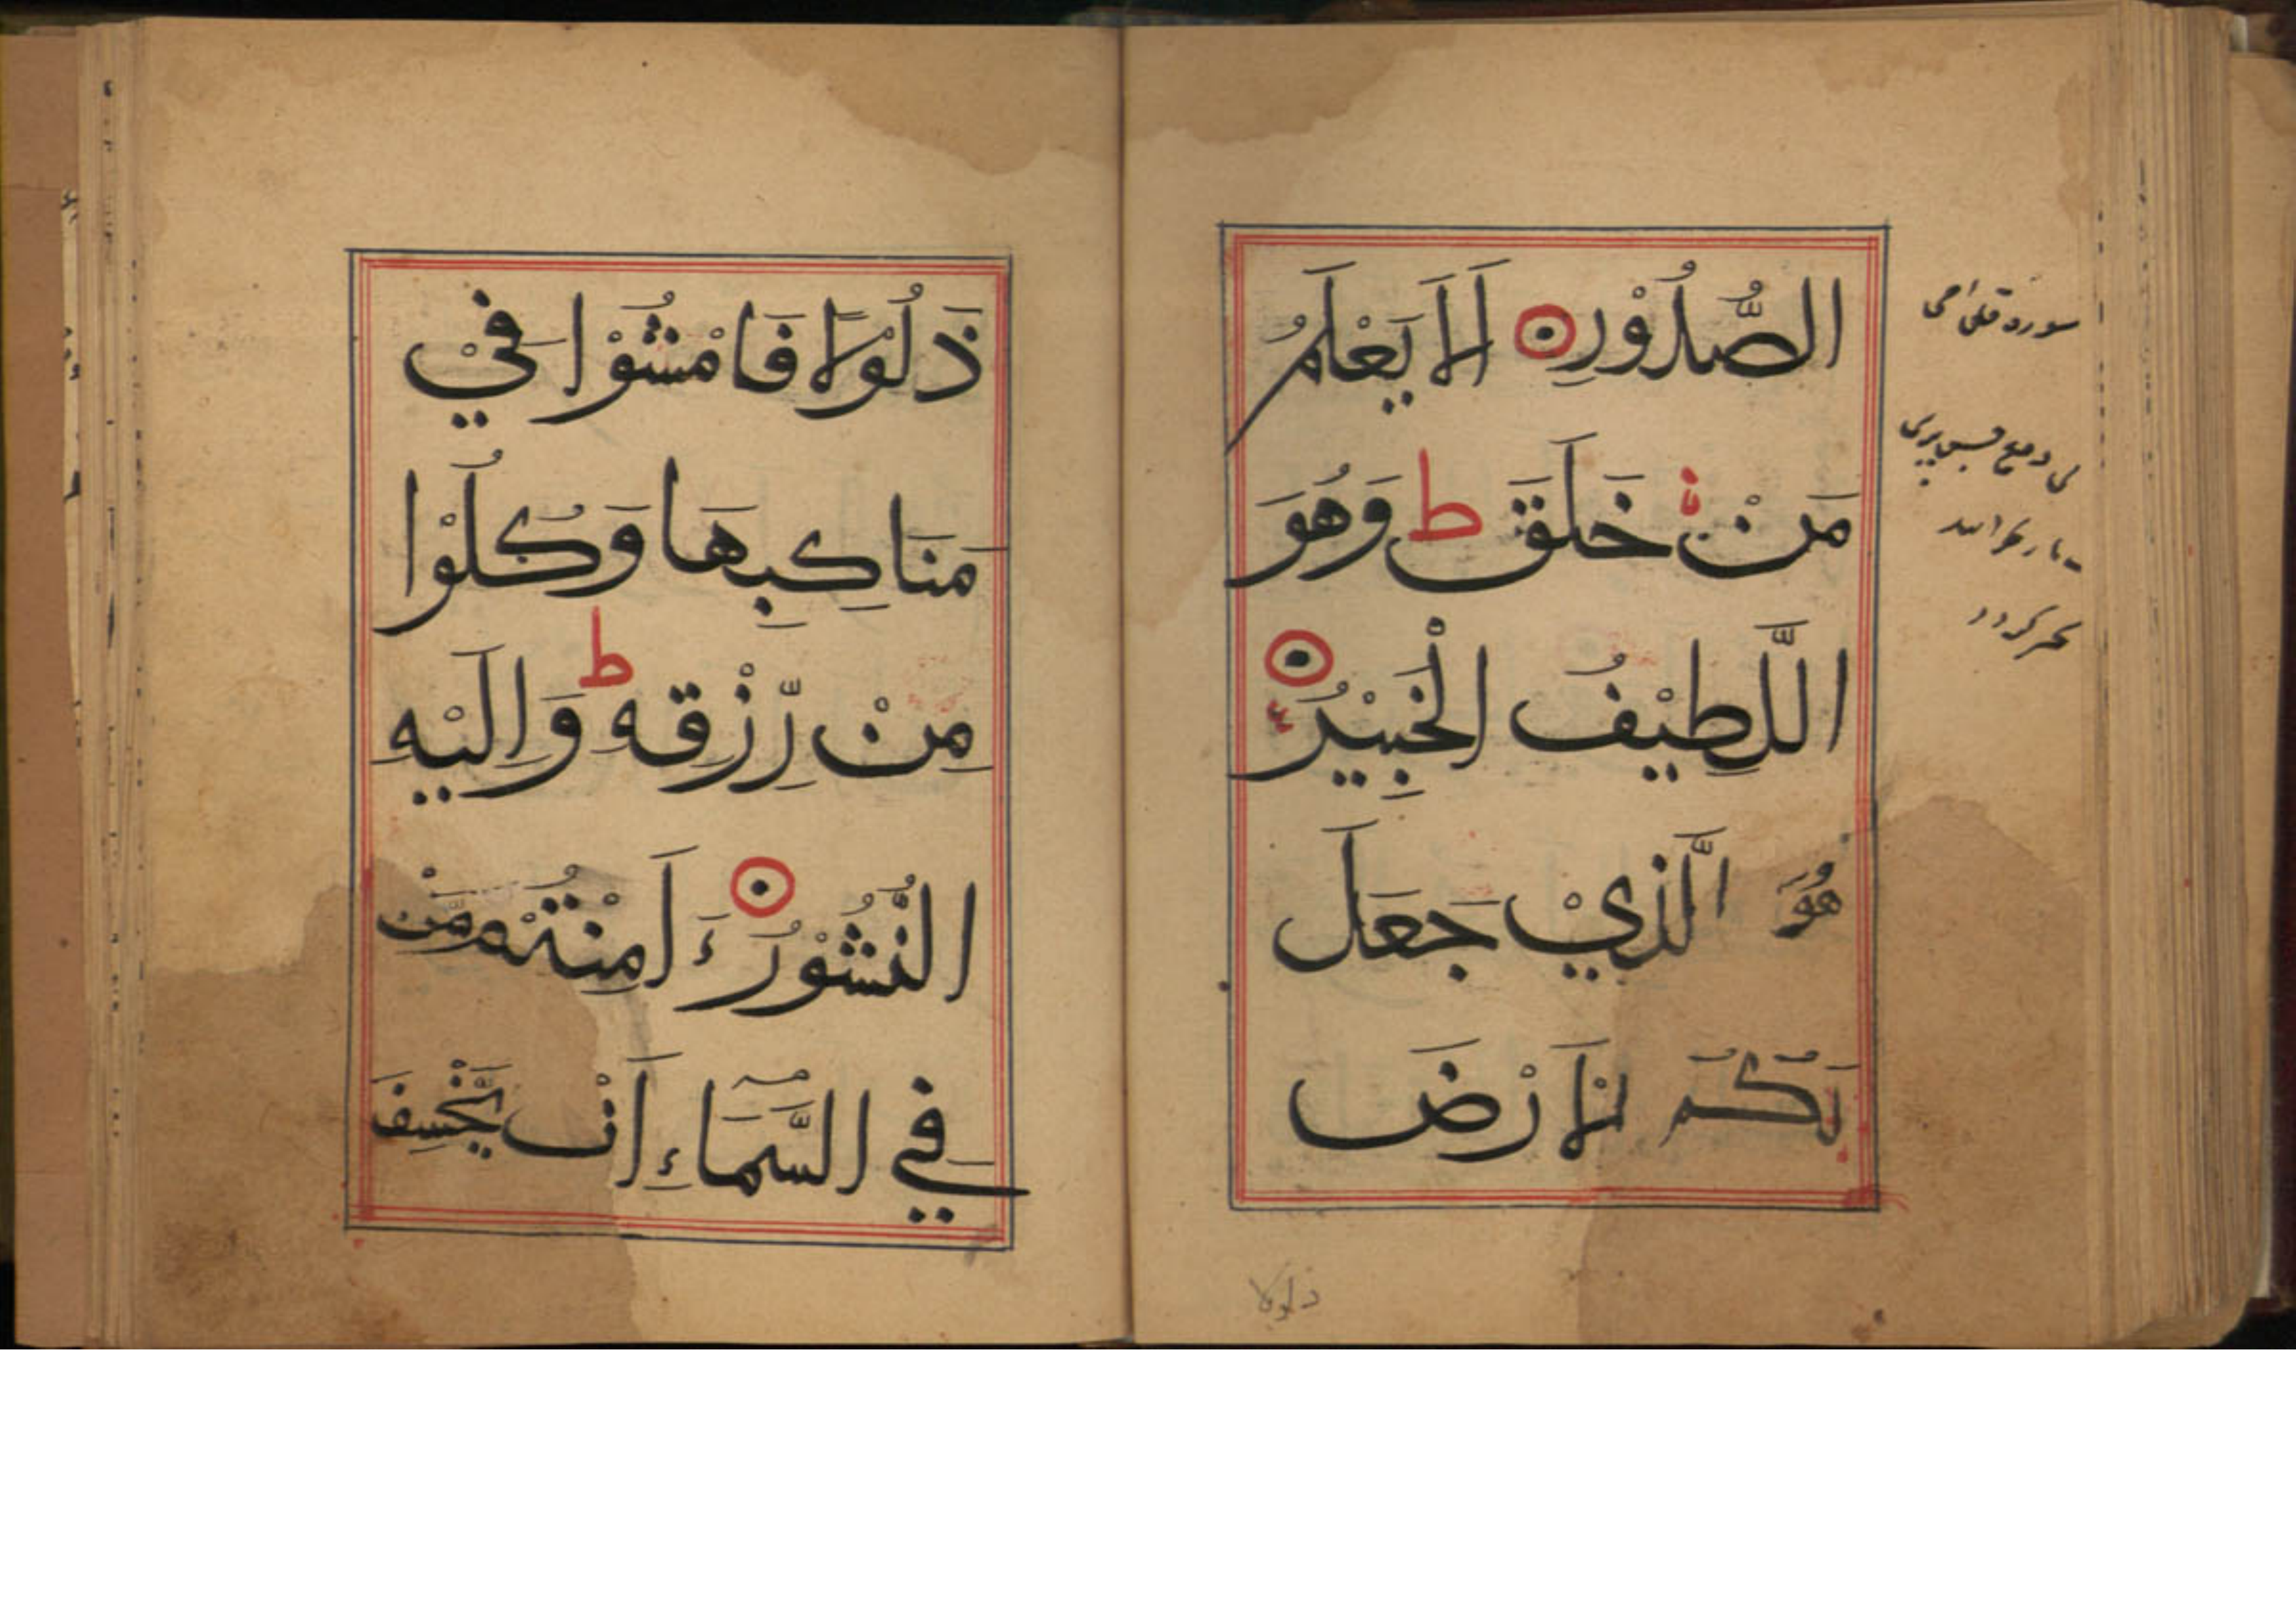 الصُّدُوْرِ اَلَا يَعْلَمُ
مَنْ خَلَقَ ط وَهُوَ
اللَّطِيْفُ الْخَبِيْرُ
هُوَ الَّذِيْ جَعَلَ
لَكُمُ الْاَرْضَ
ذلولا
سورة
ذَلُوْلًا فَامْشُوْا فِيْ
مَنَاكِبِهَا وَكُلُوْا
مِنْ رِّزْقِهٖ ط وَاِلَيْهِ
النُّشُوْرُ ءَ اَمِنْتُمْ مَّنْ
فِي السَّمَاءِ اَنْ يَّخْسِفَ